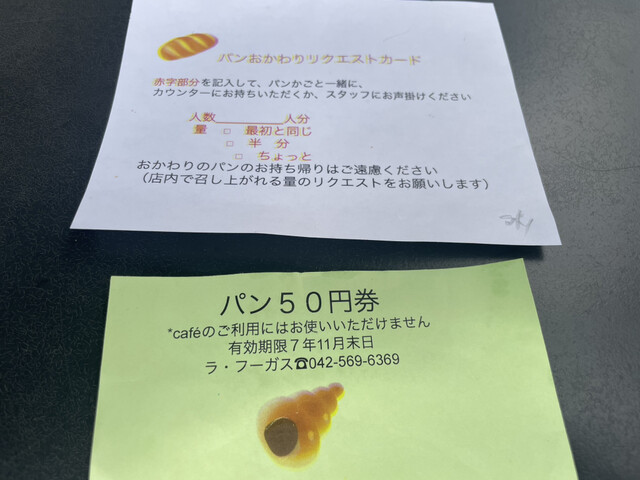 パンおかわりリクエストカード
赤字部分を記入して、パンかごと一緒に、
カウンターにお持ちいただくか、スタッフにお声掛けください
人数________人分
量 □ 最初と同じ
□ 半 分
□ ちょっと
おかわりのパンのお持ち帰りはご遠慮ください
（店内で召し上がれる量のリクエストをお願いします）
パン５０円券
*caféのご利用にはお使いいただけません
有効期限７年11月末日
ラ・フーガス☎042-569-6369